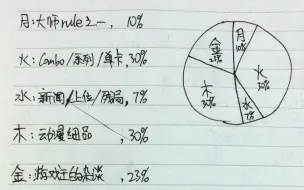 月:大师rule之一, 10%
火: Combo/系列/单卡, 30%
水:新闻/上位/残局, 7%
木:动漫细品, 30%
金:游戏王的杂谈, 23%
金
23%
月
10%
火
30%
木
30%
水
7%